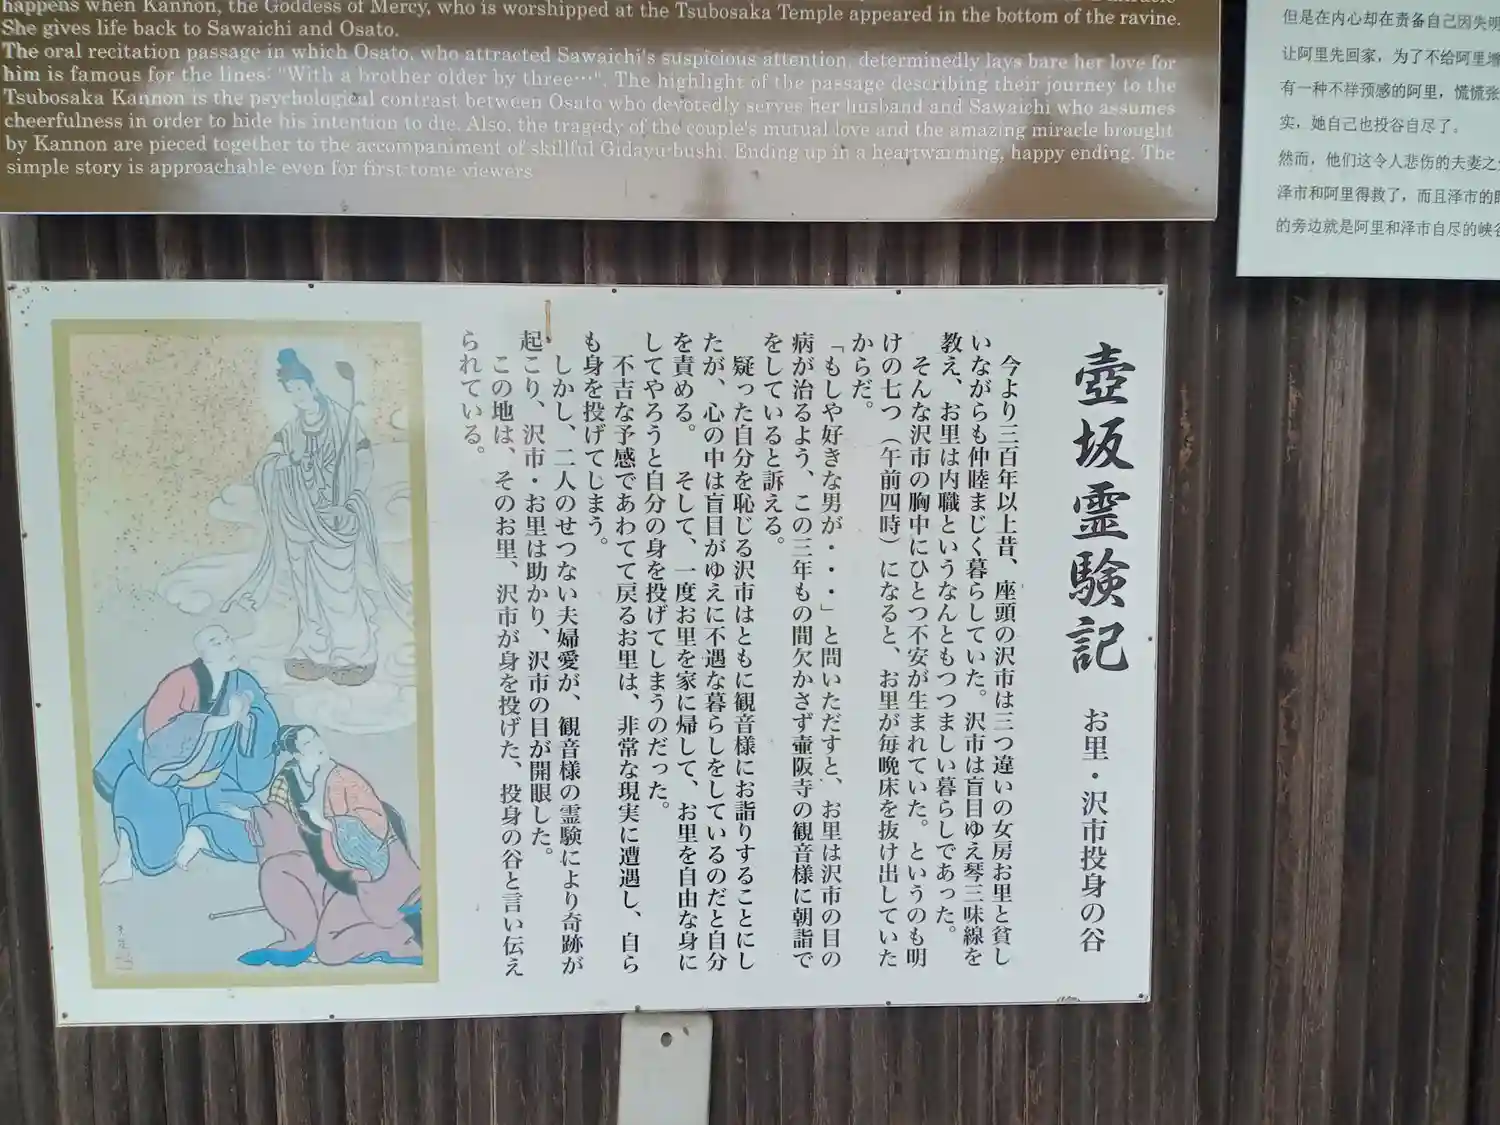 happens when Kannon, the Goddess of Mercy, who is worshipped at the Tsubosaka Temple appeared in the bottom of the ravine.
She gives life back to Sawaichi and Osato.
The oral recitation passage in which Osato, who attracted Sawaichi's suspicious attention, determinedly lays bare her love for
him is famous for the lines: "With a brother older by three…". The highlight of the passage describing their journey to the
Tsubosaka Kannon is the psychological contrast between Osato who devotedly serves her husband and Sawaichi who assumes
cheerfulness in order to hide his intention to die. Also, the tragedy of the couple's mutual love and the amazing miracle brought
by Kannon are pieced together to the accompaniment of skillful Gidayu-bushi. Ending up in a heartwarming, happy ending. The
simple story is approachable even for first tome viewers
但是在内心却在责备自己因失明
让阿里先回家，为了不给阿里增
有一种不祥预感的阿里，慌慌张
实，她自己也投谷自尽了。
然而，他们这令人悲伤的夫妻之
泽市和阿里得救了，而且泽市的眼
的旁边就是阿里和泽市自尽的峡谷
壺坂霊験記 お里・沢市投身の谷
今より三百年以上昔、座頭の沢市は三つ違いの女房お里と貧し
いながらも仲睦まじく暮らしていた。沢市は盲目ゆえ琴三味線を
教え、お里は内職というなんともつつましい暮らしであった。
そんな沢市の胸中にひとつ不安が生まれていた。というのも明
けの七つ（午前四時）になると、お里が毎晩床を抜け出していた
からだ。
「もしや好きな男が・・・」と問いただすと、お里は沢市の目の
病が治るよう、この三年もの間欠かさず壷阪寺の観音様に朝詣で
をしていると訴える。
疑った自分を恥じる沢市はともに観音様にお詣りすることにし
たが、心の中は盲目がゆえに不遇な暮らしをしているのだと自分
を責める。 そして、一度お里を家に帰して、お里を自由な身に
してやろうと自分の身を投げてしまうのだった。
不吉な予感であわてて戻るお里は、非常な現実に遭遇し、自ら
も身を投げてしまう。
しかし、二人のせつない夫婦愛が、観音様の霊験により奇跡が
起こり、沢市・お里は助かり、沢市の目が開眼した。
この地は、そのお里、沢市が身を投げた、投身の谷と言い伝え
られている。